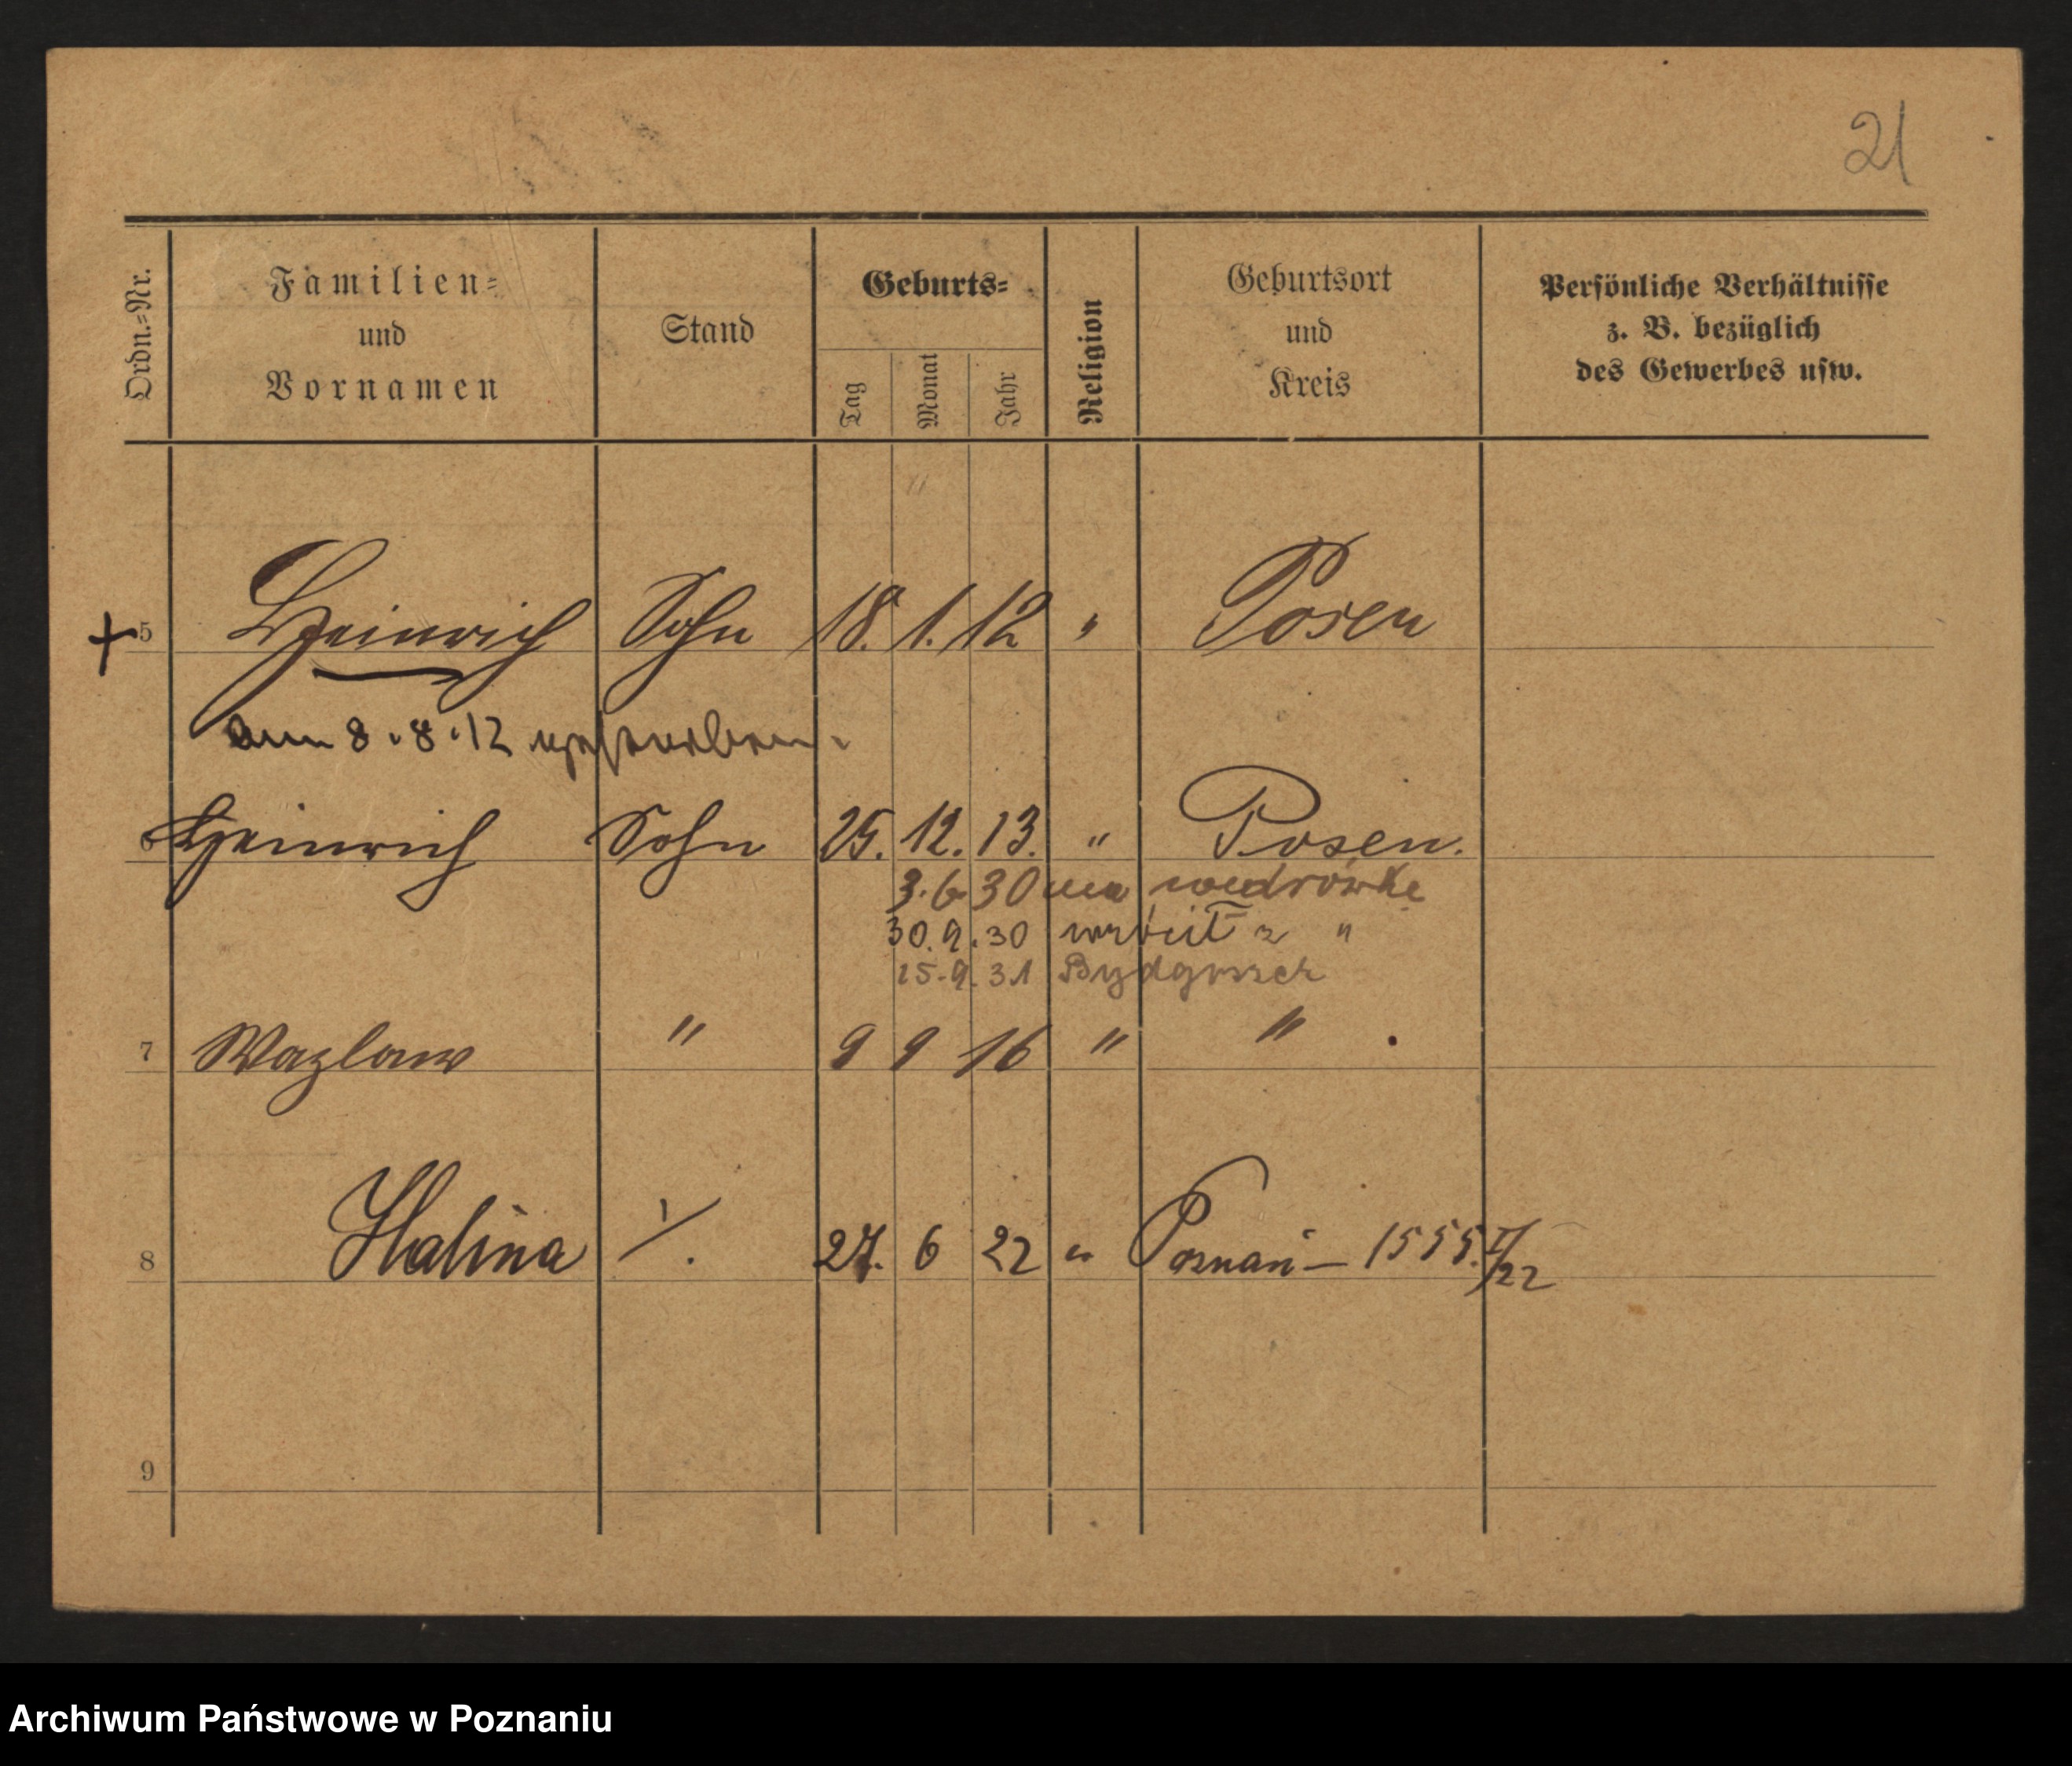 21
Ordn.=Nr.
Familien=
und
Vornamen
Stand
Geburts=
Tag
Monat
Jahr
Religion
Geburtsort
und
Kreis
Persönliche Verhältnisse
z. B. bezüglich
des Gewerbes usw.
+ 5 Heinrich Sohn 18. 1. 12 " Posen
am 8.8.12 gestorben.
6 Heinrich Sohn 25. 12. 13. " Posen.
3.6 30 na wędrówkę
30.9.30 wrócił z "
15.9.31 Bydgoszcz
7 Wazlaw " 9 9 16 " "
8 Halina ./. 27. 6 22 " Poznań – 1555. I/22
9
Archiwum Państwowe w Poznaniu